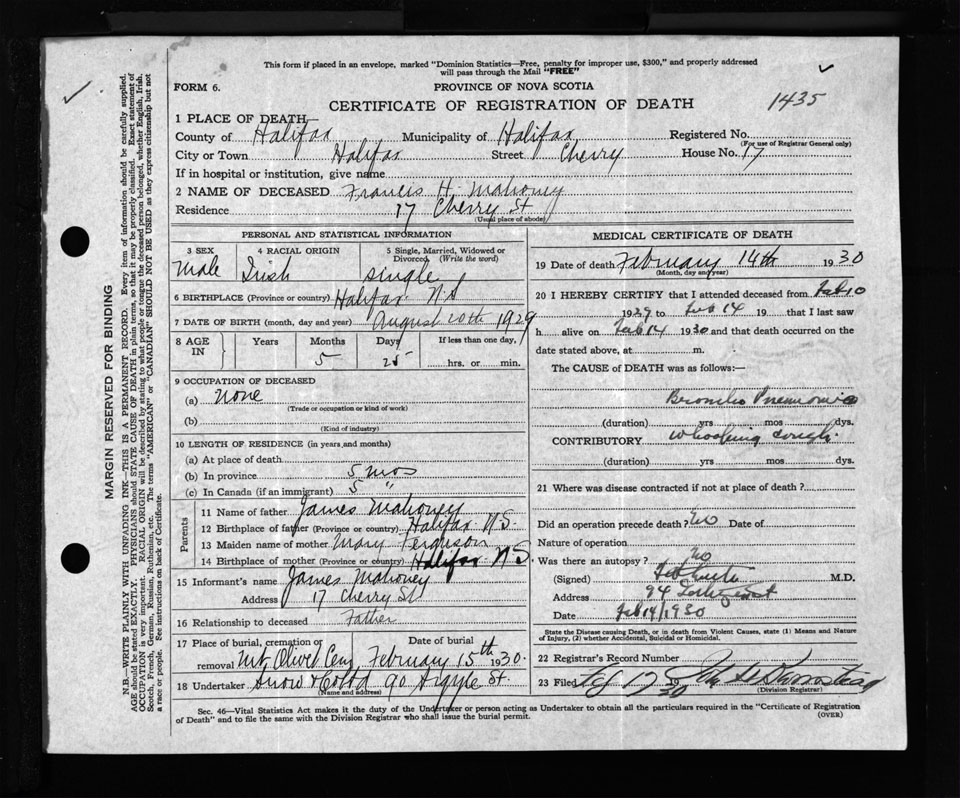 This form if placed in an envelope, marked "Dominion Statistics—Free, penalty for improper use, $300," and properly addressed
will pass through the Mail "FREE"
FORM 6.
PROVINCE OF NOVA SCOTIA
CERTIFICATE OF REGISTRATION OF DEATH
1435
1 PLACE OF DEATH
County of Halifax Municipality of Halifax Registered No.
(For use of Registrar General only)
City or Town Halifax Street Cherry House No. 17
If in hospital or institution, give name
2 NAME OF DECEASED Francis H. Mahoney
Residence 17 Cherry St
(Usual place of abode)
PERSONAL AND STATISTICAL INFORMATION
3 SEX 4 RACIAL ORIGIN 5 Single, Married, Widowed or
Divorced (Write the word)
Male Irish single
6 BIRTHPLACE (Province or country) Halifax N.S
7 DATE OF BIRTH (month, day and year) August 20th 1929
8 AGE IN Years Months Days If less than one day,
5 25 hrs. or min.
9 OCCUPATION OF DECEASED
(a) None
(Trade or occupation or kind of work)
(b)
(Kind of industry)
10 LENGTH OF RESIDENCE (in years and months)
(a) At place of death
(b) In province 5 mos
(c) In Canada (if an immigrant) 5 "
Parents
11 Name of father James Mahoney
12 Birthplace of father (Province or country) Halifax N.S.
13 Maiden name of mother Mary Ferguson
14 Birthplace of mother (Province or country) Halifax N S.
15 Informant's name James Mahoney
Address 17 Cherry St
16 Relationship to deceased Father
17 Place of burial, cremation or Date of burial
removal Mt. Olivet Cem, February 15th 1930.
18 Undertaker Snow & Co Ltd 90 Argyle St.
(Name and address)
MEDICAL CERTIFICATE OF DEATH
19 Date of death February 14th 1930
(Month, day and year)
20 I HEREBY CERTIFY that I attended deceased from Feb 10
1929 to Feb 14 19 that I last saw
h alive on Feb 14 1930 and that death occurred on the
date stated above, at m.
The CAUSE of DEATH was as follows:—
Broncho Pneumonia
(duration) yrs mos dys.
CONTRIBUTORY Whooping cough.
(duration) yrs mos dys.
21 Where was disease contracted if not at place of death?
Did an operation precede death? No Date of
Nature of operation
Was there an autopsy? No
(Signed) M.D.
Address 94
Date Feb 14/1930
State the Disease causing Death, or in death from Violent Causes, state (1) Means and Nature
of Injury, (2) whether Accidental, Suicidal or Homicidal.
22 Registrar's Record Number
23 Filed Feb 17 1930
(Division Registrar)
Sec. 46—Vital Statistics Act makes it the duty of the Undertaker or person acting as Undertaker to obtain all the particulars required in the "Certificate of Registration
of Death" and to file the same with the Division Registrar who shall issue the burial permit. (OVER)
MARGIN RESERVED FOR BINDING
N.B.—WRITE PLAINLY WITH UNFADING INK—THIS IS A PERMANENT RECORD. Every item of information should be carefully supplied.
AGE should be stated EXACTLY. PHYSICIANS should STATE CAUSE OF DEATH in plain terms, so that it may be properly classified. Exact statement of
OCCUPATION is very important. RACIAL ORIGIN will be described by stating to what people or tongue the deceased person belonged, whether English, Irish,
Scotch, French, German, Russian, Ruthenian, etc. The terms "AMERICAN" or "CANADIAN" SHOULD NOT BE USED as they express citizenship but not
a race or people. See instructions on back of Certificate.